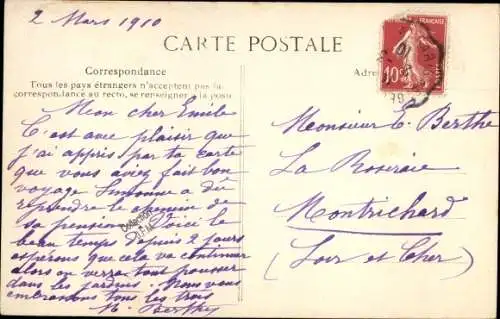 2 Mars 1910
CARTE POSTALE
Correspondance
Tous les pays étrangers n'acceptent pas la
correspondance au recto, se renseigner à la poste
Adre
RÉPUBLIQUE FRANÇAISE
10c
POSTES
Mon cher Emile
C'est avec plaisir que
j'ai appris par ta carte
que vous avez fait bon
voyage Simonne a dû
reprendre le chemin de
sa pension Voici le
beau temps depuis 2 jours
espérons que cela va continuer
alors on verra tout pousser
dans les jardins. Nous vous
embrassons tous les trois
M. Berthe
Collection
Monsieur E. Berthe
La Roseraie
Montrichard
(Loir et Cher)